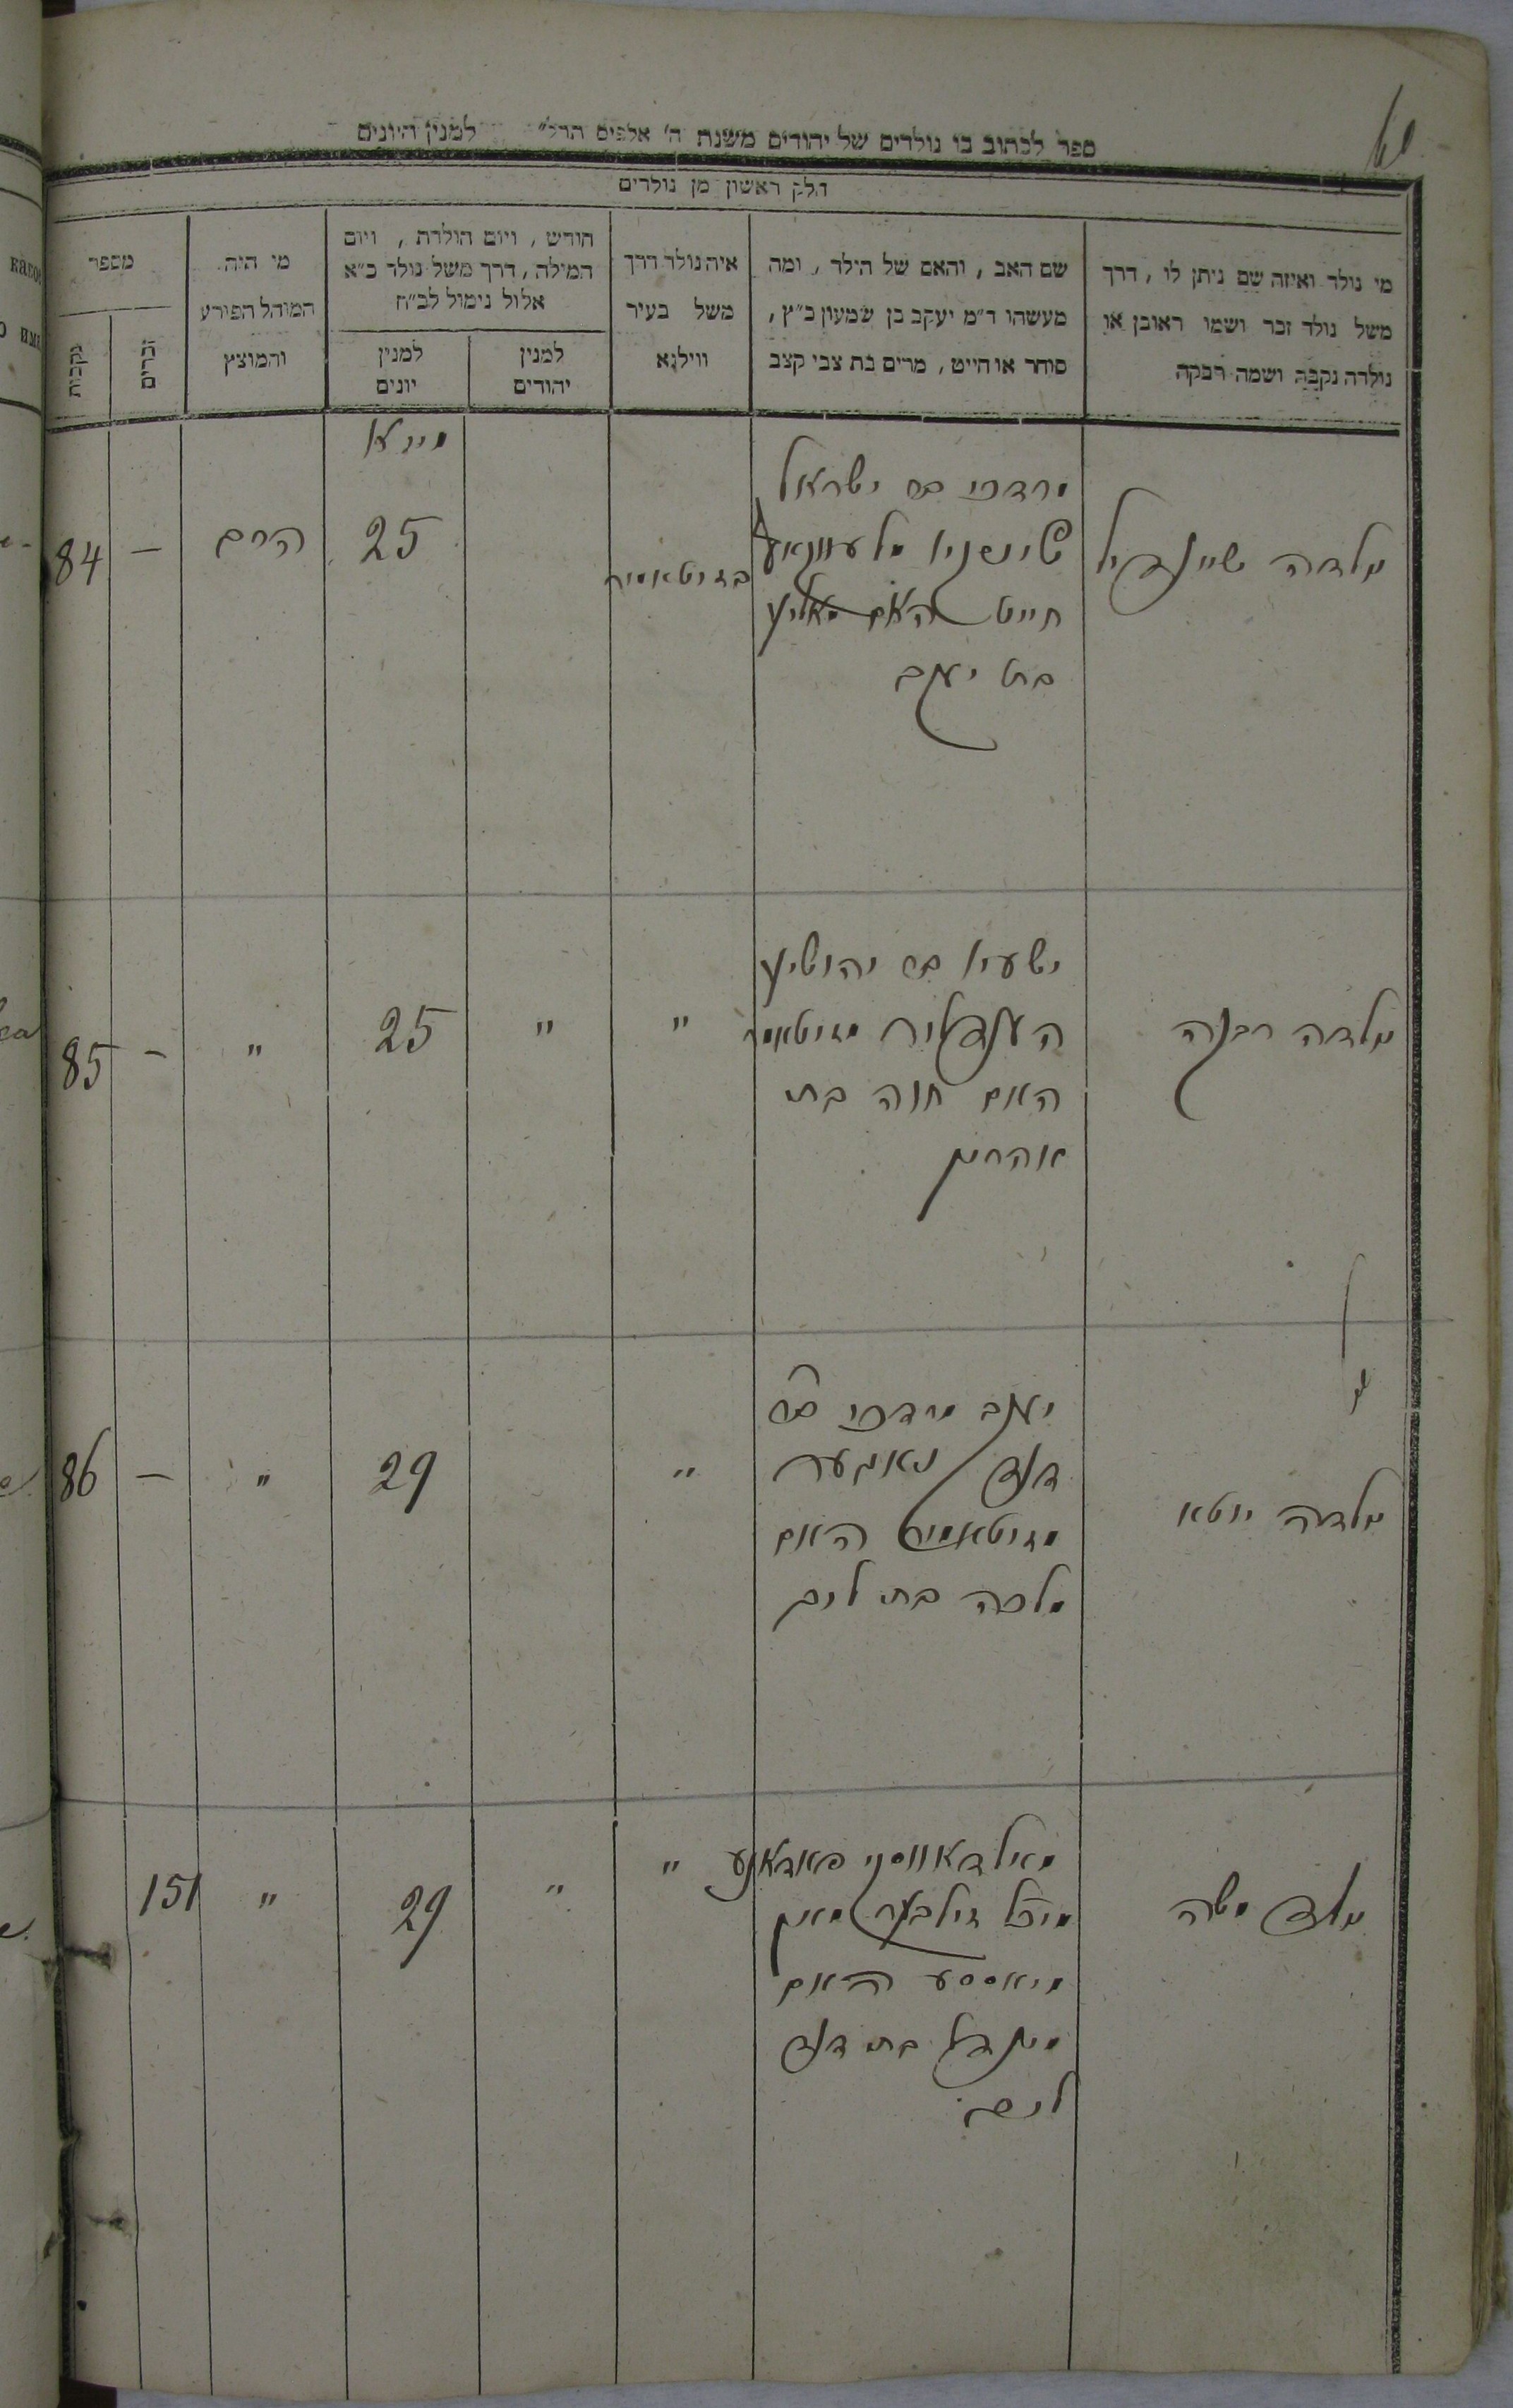 ספר לכתוב בו נולדים של יהודים משנת ה' אלפים תרל" למנין היונים
חלק ראשון מן נולדים
מי נולד ואיזה שם ניתן לו, דרך
משל נולד זכר ושמו ראובן או
נולדה נקבה ושמה רבקה
שם האב, והאם של הילד, ומה
מעשהו ד"מ יעקב בן שמעון כ"ץ,
סוחר או חייט, מרים בת צבי קצב
איה נולד דרך
משל בעיר
ווילנא
חודש, ויום הולדת, ויום
המילה, דרך משל נולד כ"א
אלול נימול לכ"ח
למנין
יהודים
למנין
יונים
מי היה
המוהל הפורע
והמוצץ
מספר
זכרים
נקבות
נולדה שיינדיל
מרדכי בר ישראל
חייט האם
בת יעקב
בזיטאמיר
מייא
25
הרב
—
84
נולדה רבקה
ישעיו בר
מזיטאמיר
האם חוה בת
אהרן
"
"
25
"
—
85
נולדה יוטא
יעקב מרדכי בר
דוד
מזיטאמיר האם
מלכה בת ליב
"
29
"
—
86
נולד משה
מיכל זילבער
האם
מינדל בת דוד
ליב
"
"
29
"
151